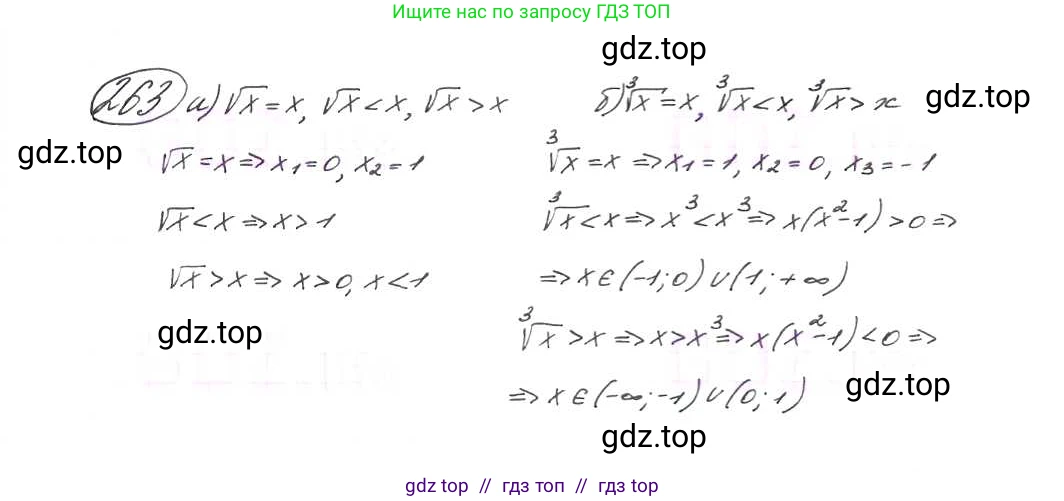 Ищите нас по запросу ГДЗ ТОП
gdz.top
263 а) √x = x, √x < x, √x > x
б) ∛x = x, ∛x < x, ∛x > x
gdz.top
gdz.top
√x = x ⇒ x₁ = 0, x₂ = 1
∛x = x ⇒ x₁ = 1, x₂ = 0, x₃ = -1
√x < x ⇒ x > 1
∛x < x ⇒ x³ < x³ ⇒ x(x² - 1) > 0 ⇒
√x > x ⇒ x > 0, x < 1
⇒ x ∈ (-1; 0) ∪ (1; +∞)
gdz.top
∛x > x ⇒ x > x³ ⇒ x(x² - 1) < 0 ⇒
⇒ x ∈ (-∞; -1) ∪ (0; 1)
gdz.top
gdz.top
gdz top // гдз топ // gdz top